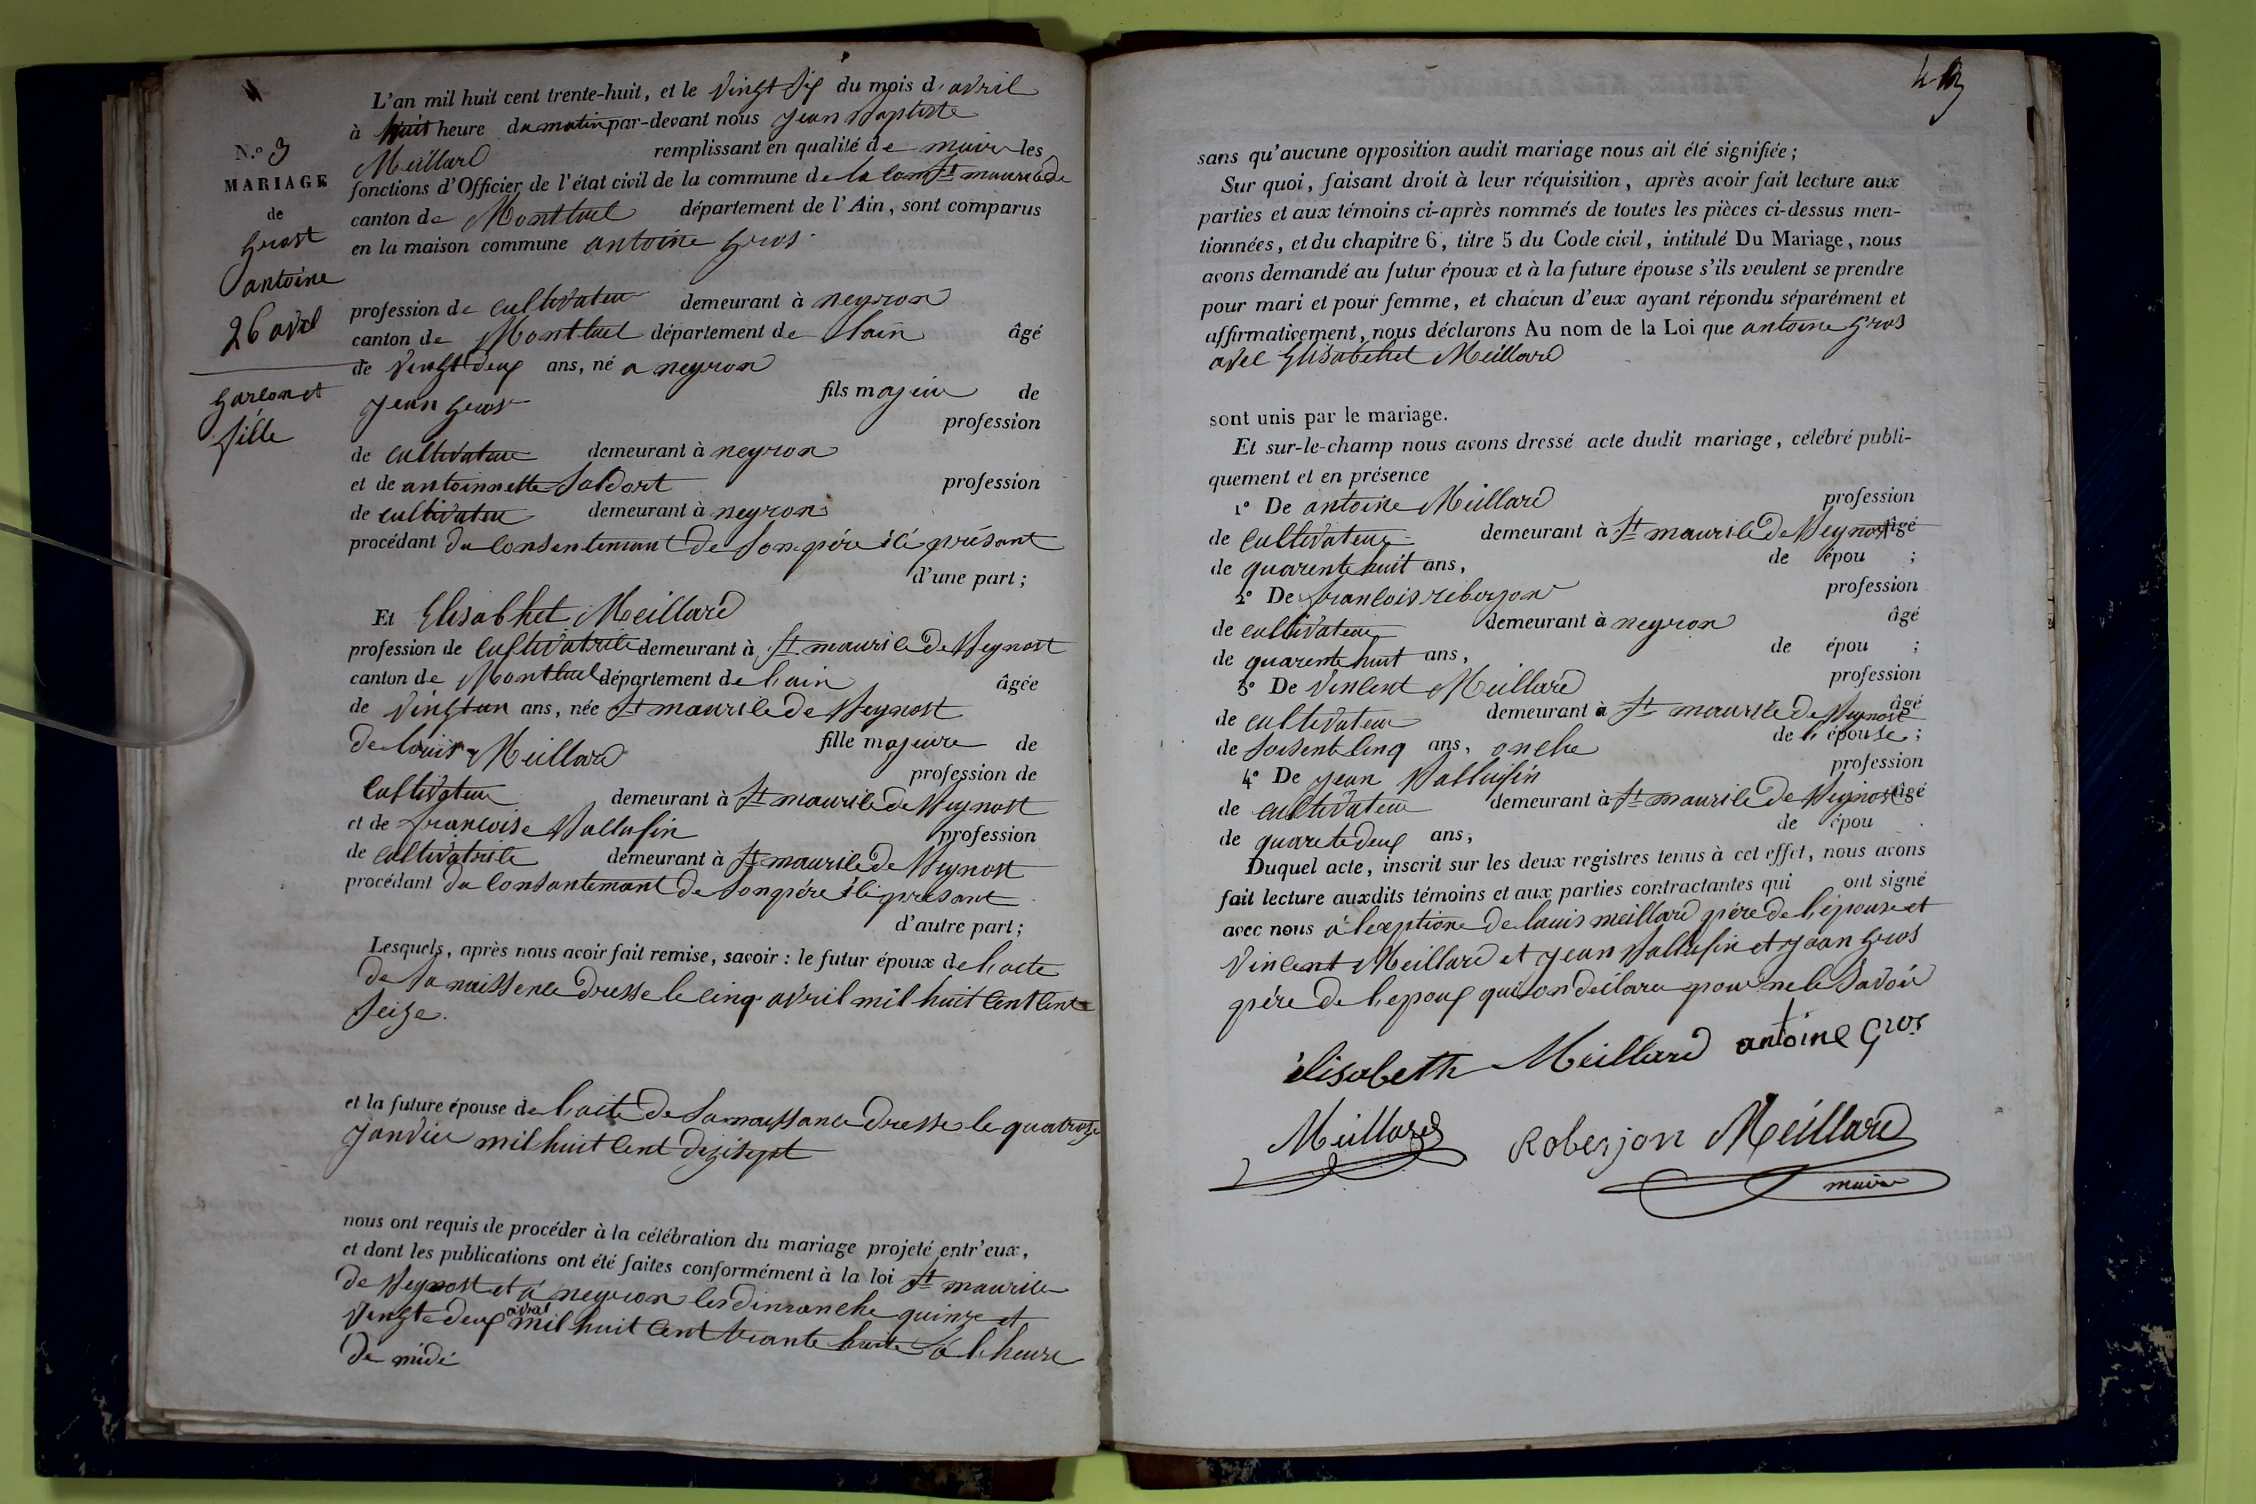 L'an mil huit cent trente-huit, et le vingt six du mois d'avril
à huit heure du matin par-devant nous jean Baptiste
Meillard remplissant en qualité de maire les
fonctions d'Officier de l'état civil de la commune de la com St maurice de
canton de Montluel département de l'Ain, sont comparus
en la maison commune antoine gros
N.º 3
MARIAGE
de
grost
antoine
26 avril
garcon et
fille
profession de cultivateur demeurant à neyron
canton de Montluel département de lain âgé
de vingt deux ans, né a neyron
fils majeur de
jean gros
profession
de cultivateur demeurant à neyron
et de antoinnette profession
de cultivateur demeurant à neyron
procédant du consentemant de son père ici présant
d'une part;
Et Elisabhet Meillard
profession de cultivatrice demeurant à St maurice de Beynost
canton de Montluel département de l'ain âgée
de vingt un ans, née St maurice de Beynost
de louis Meillard fille majeure de
profession de
cultivateur demeurant à St maurice de Beynost
et de françoise Vallusin profession
de cultivatrice demeurant à St maurice de Beynost
procédant du consantemant de son père ici présant
d'autre part;
Lesquels, après nous avoir fait remise, savoir: le futur époux de l'acte
de sa naissence dresse le cinq avril mil huit cent cent
seize.
et la future épouse de l'acte de sa naissance dresse le quatroze
janvier mil huit cent dizisept
nous ont requis de procéder à la célébration du mariage projeté entr'eux,
et dont les publications ont été faites conformément à la loi St maurice
de Beynost et à neyron les dimanche quinze et
vingt deux avral mil huit cent trante huite à l'heure
de midi
sans qu'aucune opposition audit mariage nous ait été signifiée;
Sur quoi, faisant droit à leur réquisition, après avoir fait lecture aux
parties et aux témoins ci-après nommés de toutes les pièces ci-dessus men-
tionnées, et du chapitre 6, titre 5 du Code civil, intitulé Du Mariage, nous
avons demandé au futur époux et à la future épouse s'ils veulent se prendre
pour mari et pour femme, et chacun d'eux ayant répondu séparément et
affirmativement, nous déclarons Au nom de la Loi que antoine gros
avec Elisabehet Meillard
sont unis par le mariage.
Et sur-le-champ nous avons dressé acte dudit mariage, célébré publi-
quement et en présence
1º De antoine Meillard profession
de cultivateur demeurant à St maurice de Beynost âgé
de quarente huit ans, de épou ;
2º De francois reberjon profession
de cultivateur demeurant à neyron âgé
de quarente huit ans, de épou ;
3º De vincent Meillard profession
de cultivateur demeurant à St maurice de Beynost âgé
de soisent cinq ans, oncle de l'épouse;
4º De jean Vallusin profession
de cultivateur demeurant à St maurice de Beynost âgé
de quarete deux ans, de épou .
Duquel acte, inscrit sur les deux registres tenus à cet effet, nous avons
fait lecture auxdits témoins et aux parties contractantes qui ont signé
avec nous à l'exptione de louis meillard père de l'épouse et
vincent Meillard et jean Vallusin et jean gros
père de l'epoux qui on déclare pour ne le savoir
élisabeth Meillard antoine gros
Meillard Roberjon Meillard
maire